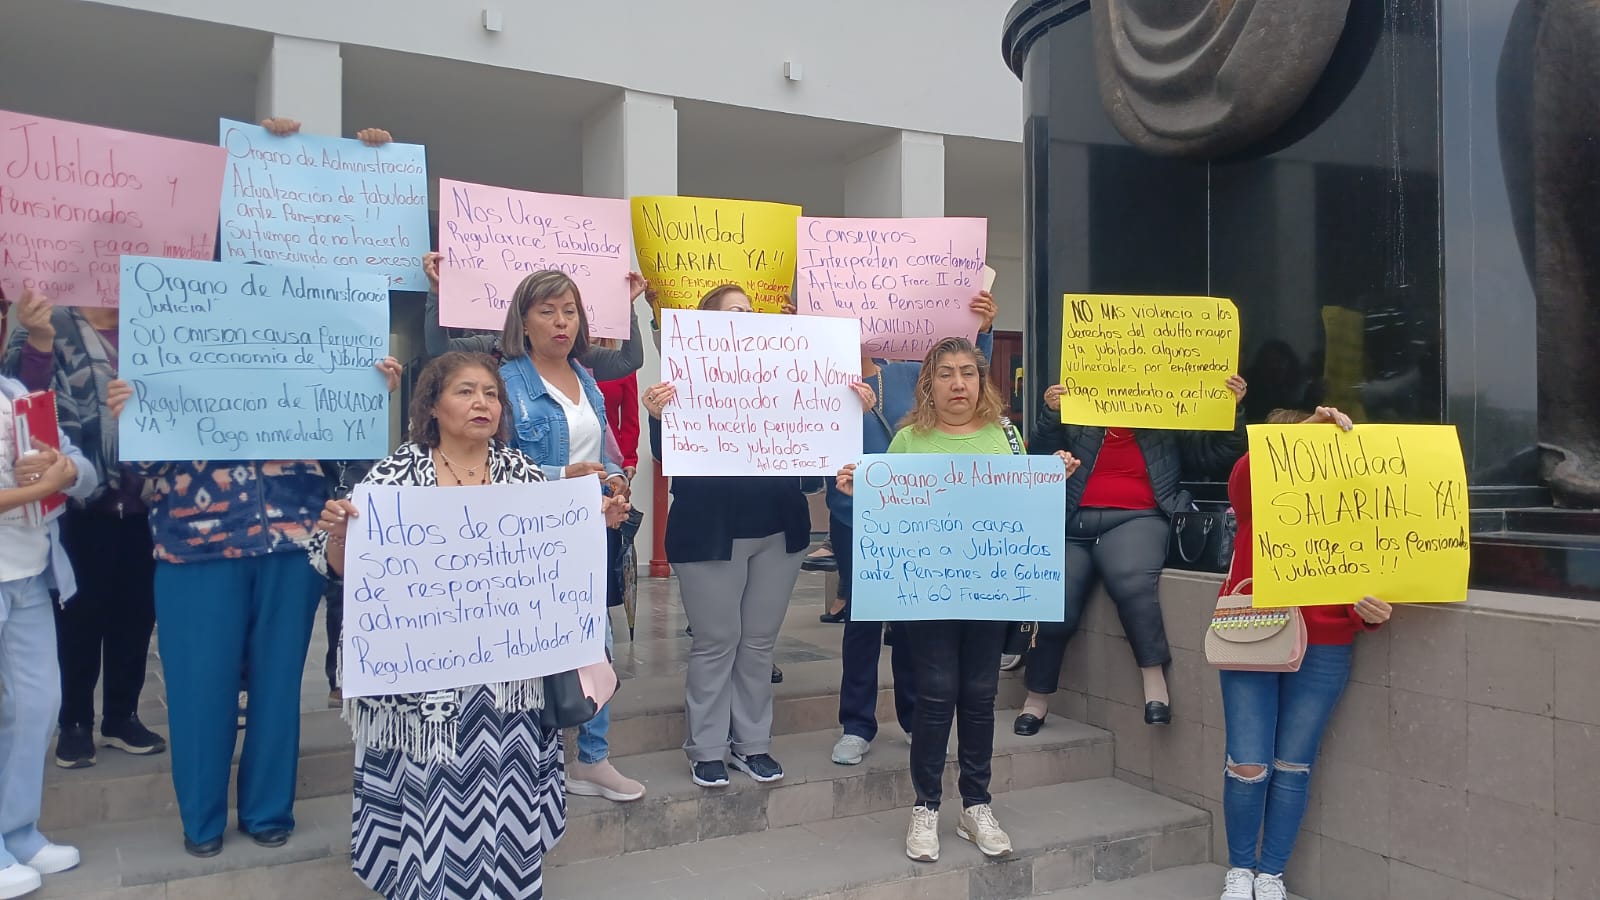 Jubilados y
Pensionados
exigimos pago inmediato
Activos para
s pague
Organo de Administración
Actualización de tabulador
ante Pensiones!!
Su tiempo de no hacerlo
ha transcurrido con exceso
"Organo de Administración
Judicial"
Su omisión causa Perjuicio
a la economia de jubilados
Regularizacion de TABULADOR
YA! Pago inmediato YA!
Nos Urge se
Regularice Tabulador
Ante Pensiones
Movilidad
SALARIAL YA!!
Consejeros
Interpreten correctamente
Articulo 60 Fracc. II de
la ley de Pensiones
MOVILIDAD
SALARIAL
Actualización
Del Tabulador de Nómina
al trabajador Activo
El no hacerlo perjudica a
todos los jubilados
Art 60 Fracc II
NO MAS violencia a los
derechos del adulto mayor
ya jubilado. algunos
vulnerables por enfermedad
Pago inmediato a activos
MOVILIDAD YA!
Actos de omisión
son constitutivos
de responsabilid
administrativa y legal
Regulación de tabulador YA!
"Organo de Administración
Judicial"
Su omisión causa
Perjuicio a Jubilados
ante Pensiones de Gobierno
Art 60 Fracción II.
MOVILIDAD
SALARIAL YA!
Nos urge a los Pensionados
y jubilados!!